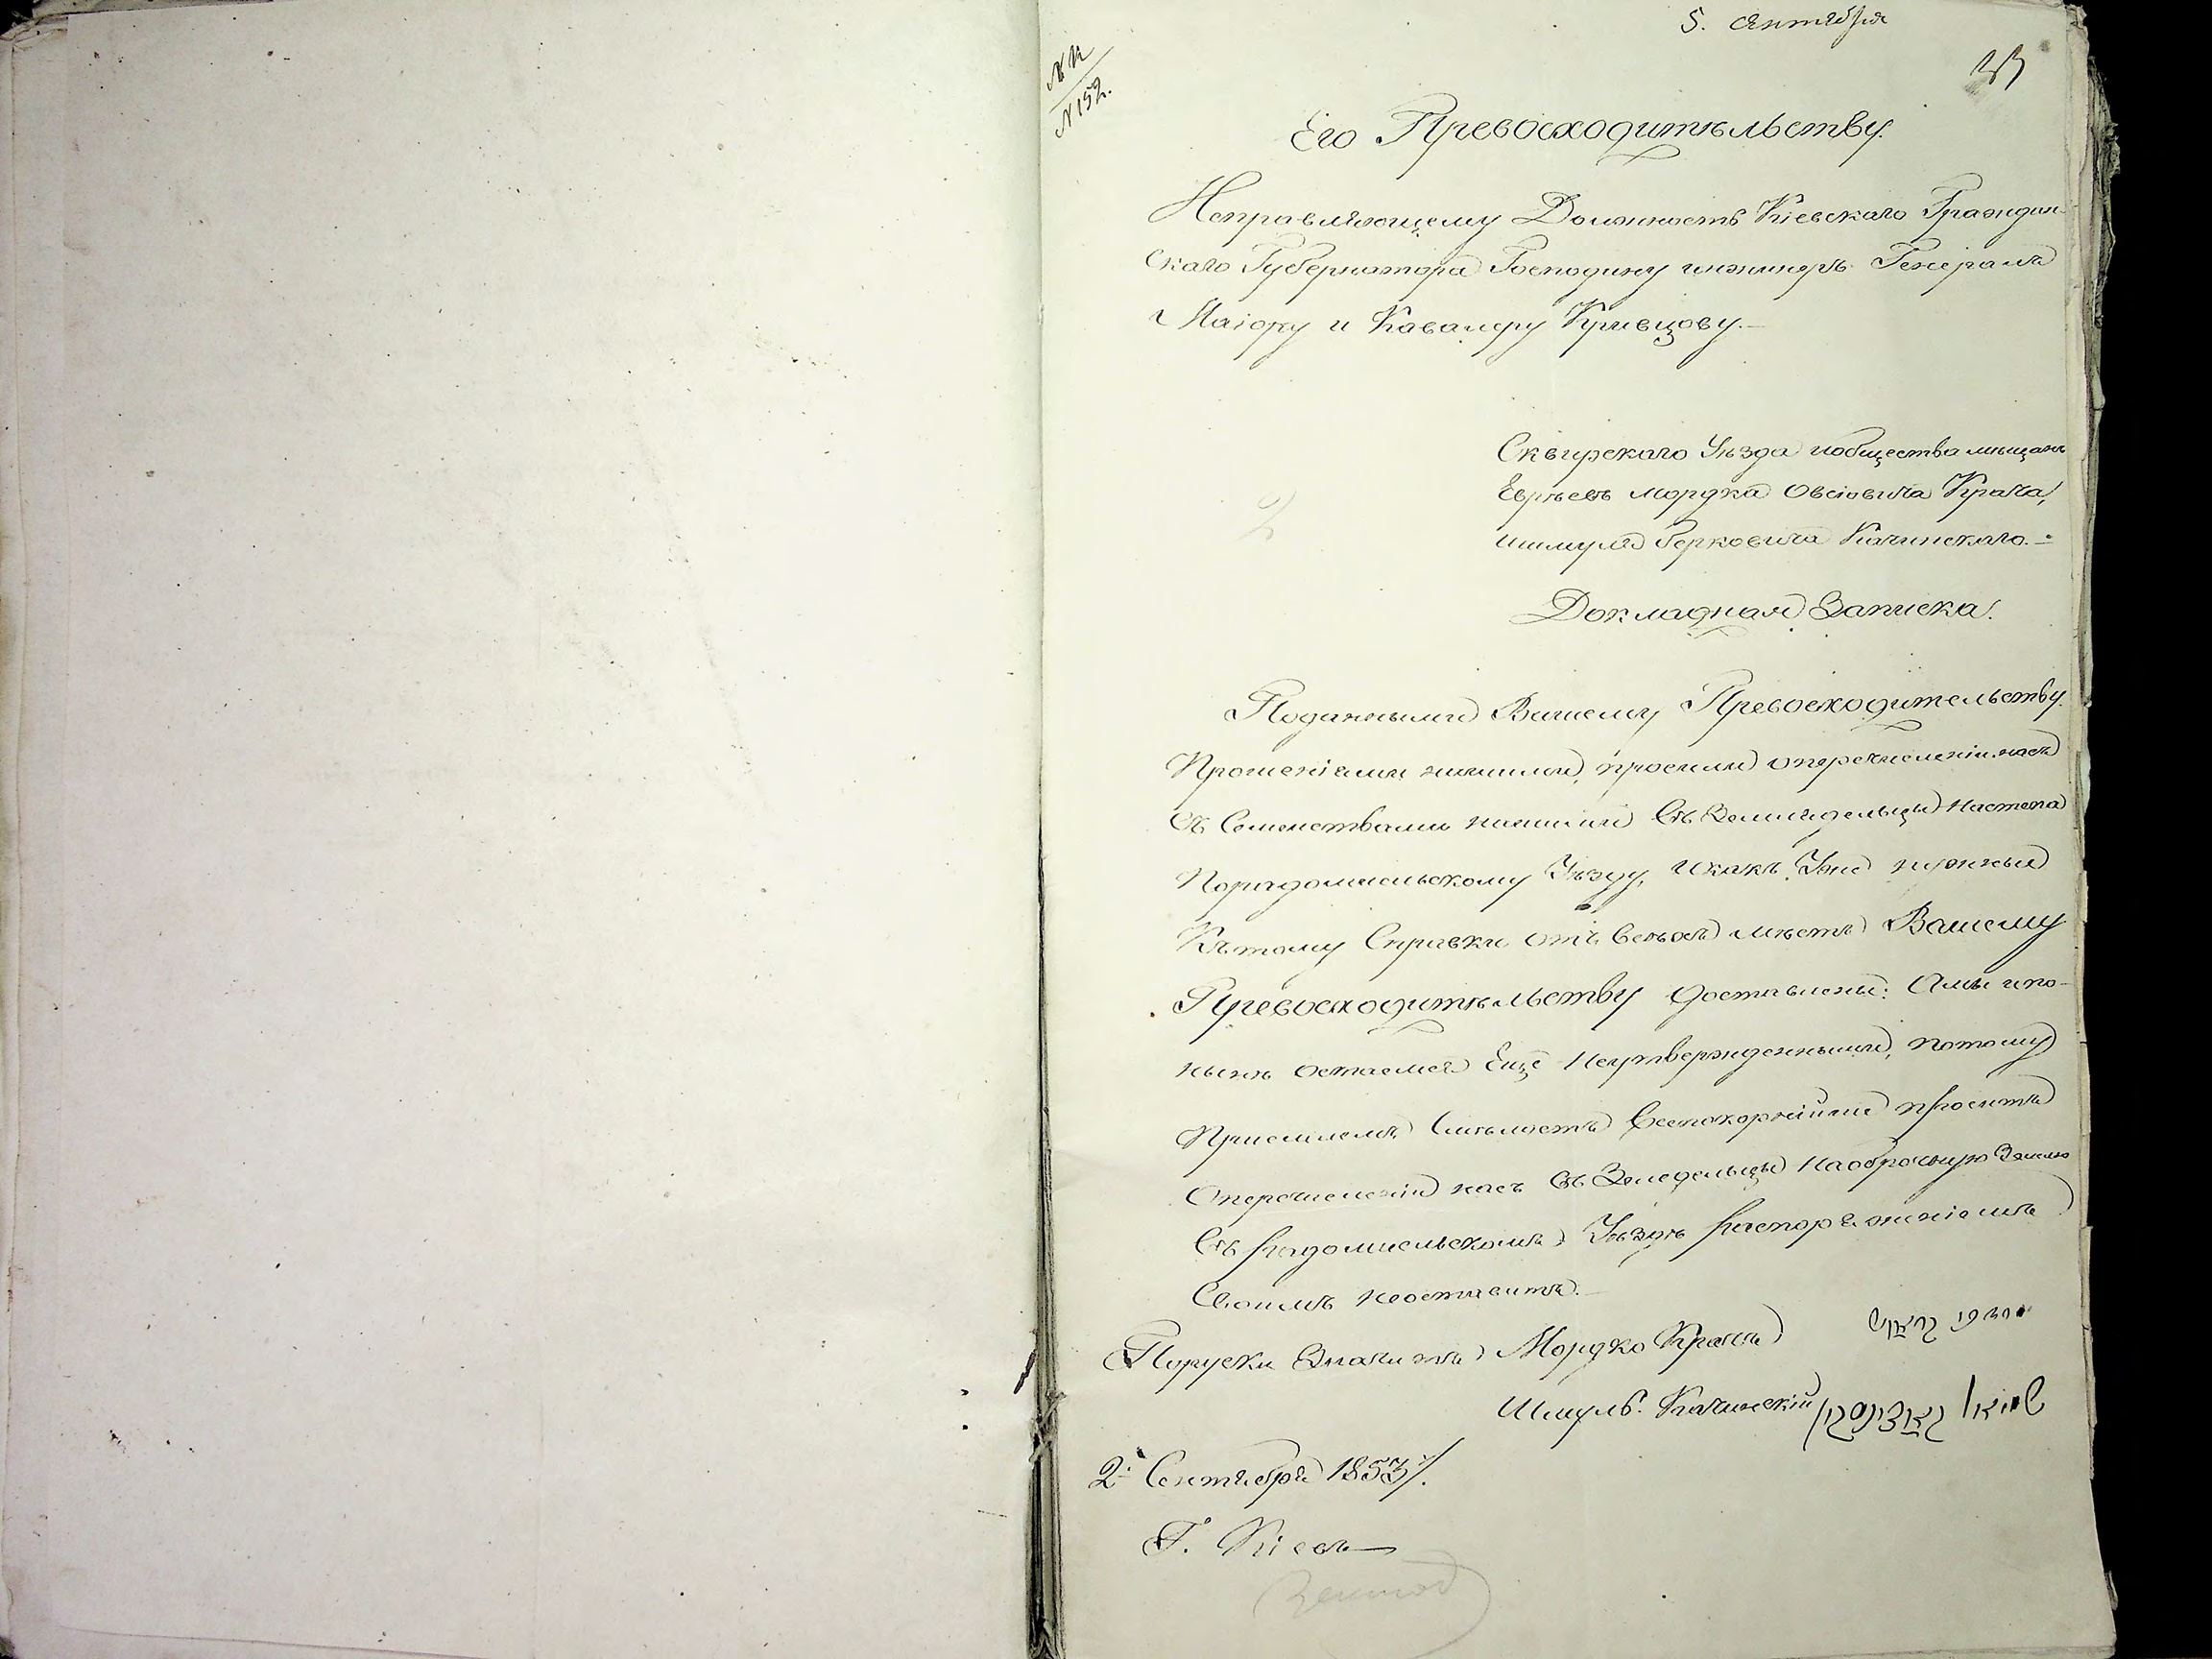 5. Сентября
N 152.
Его Превосходительству
Исправляющему Должность Кіевскаго Граждан-
скаго Губернатора Господину инжинеръ Генералъ
Маіору и Кавалеру Кривцову.
Сквирскаго Уѣзда и общества мѣщанъ
Евреевъ Мордка Овсіовича Крача,
Шмуля Берковича Качинскаго.
Докладная Записка.
2
Поданными Вашему Превосходительству
Прошеніями нашими, просили о перечисленіи насъ
съ Семействами нашими въ Земледельцы
Порадомысльскому Уѣзду, и какъ Уже нужныя
Къ тому Справки отъ всѣхъ мѣстъ Вашему
Превосходительству доставлены: Амы ипо-
нынѣ остаемся Еще Неутвержденными, потому
Пріемлемъ смѣлость Всепокорнѣйше просить
О перечисленіи насъ въ Земледельцы На оброчную Землю
Въ Радомысльскомъ Уѣздѣ распоряженіемъ
Своимъ неоставить.
Поруски Значитъ Мордко Крачъ
Шмуль Качинскій
2 Сентября 1853 г.
Г. Кіевъ